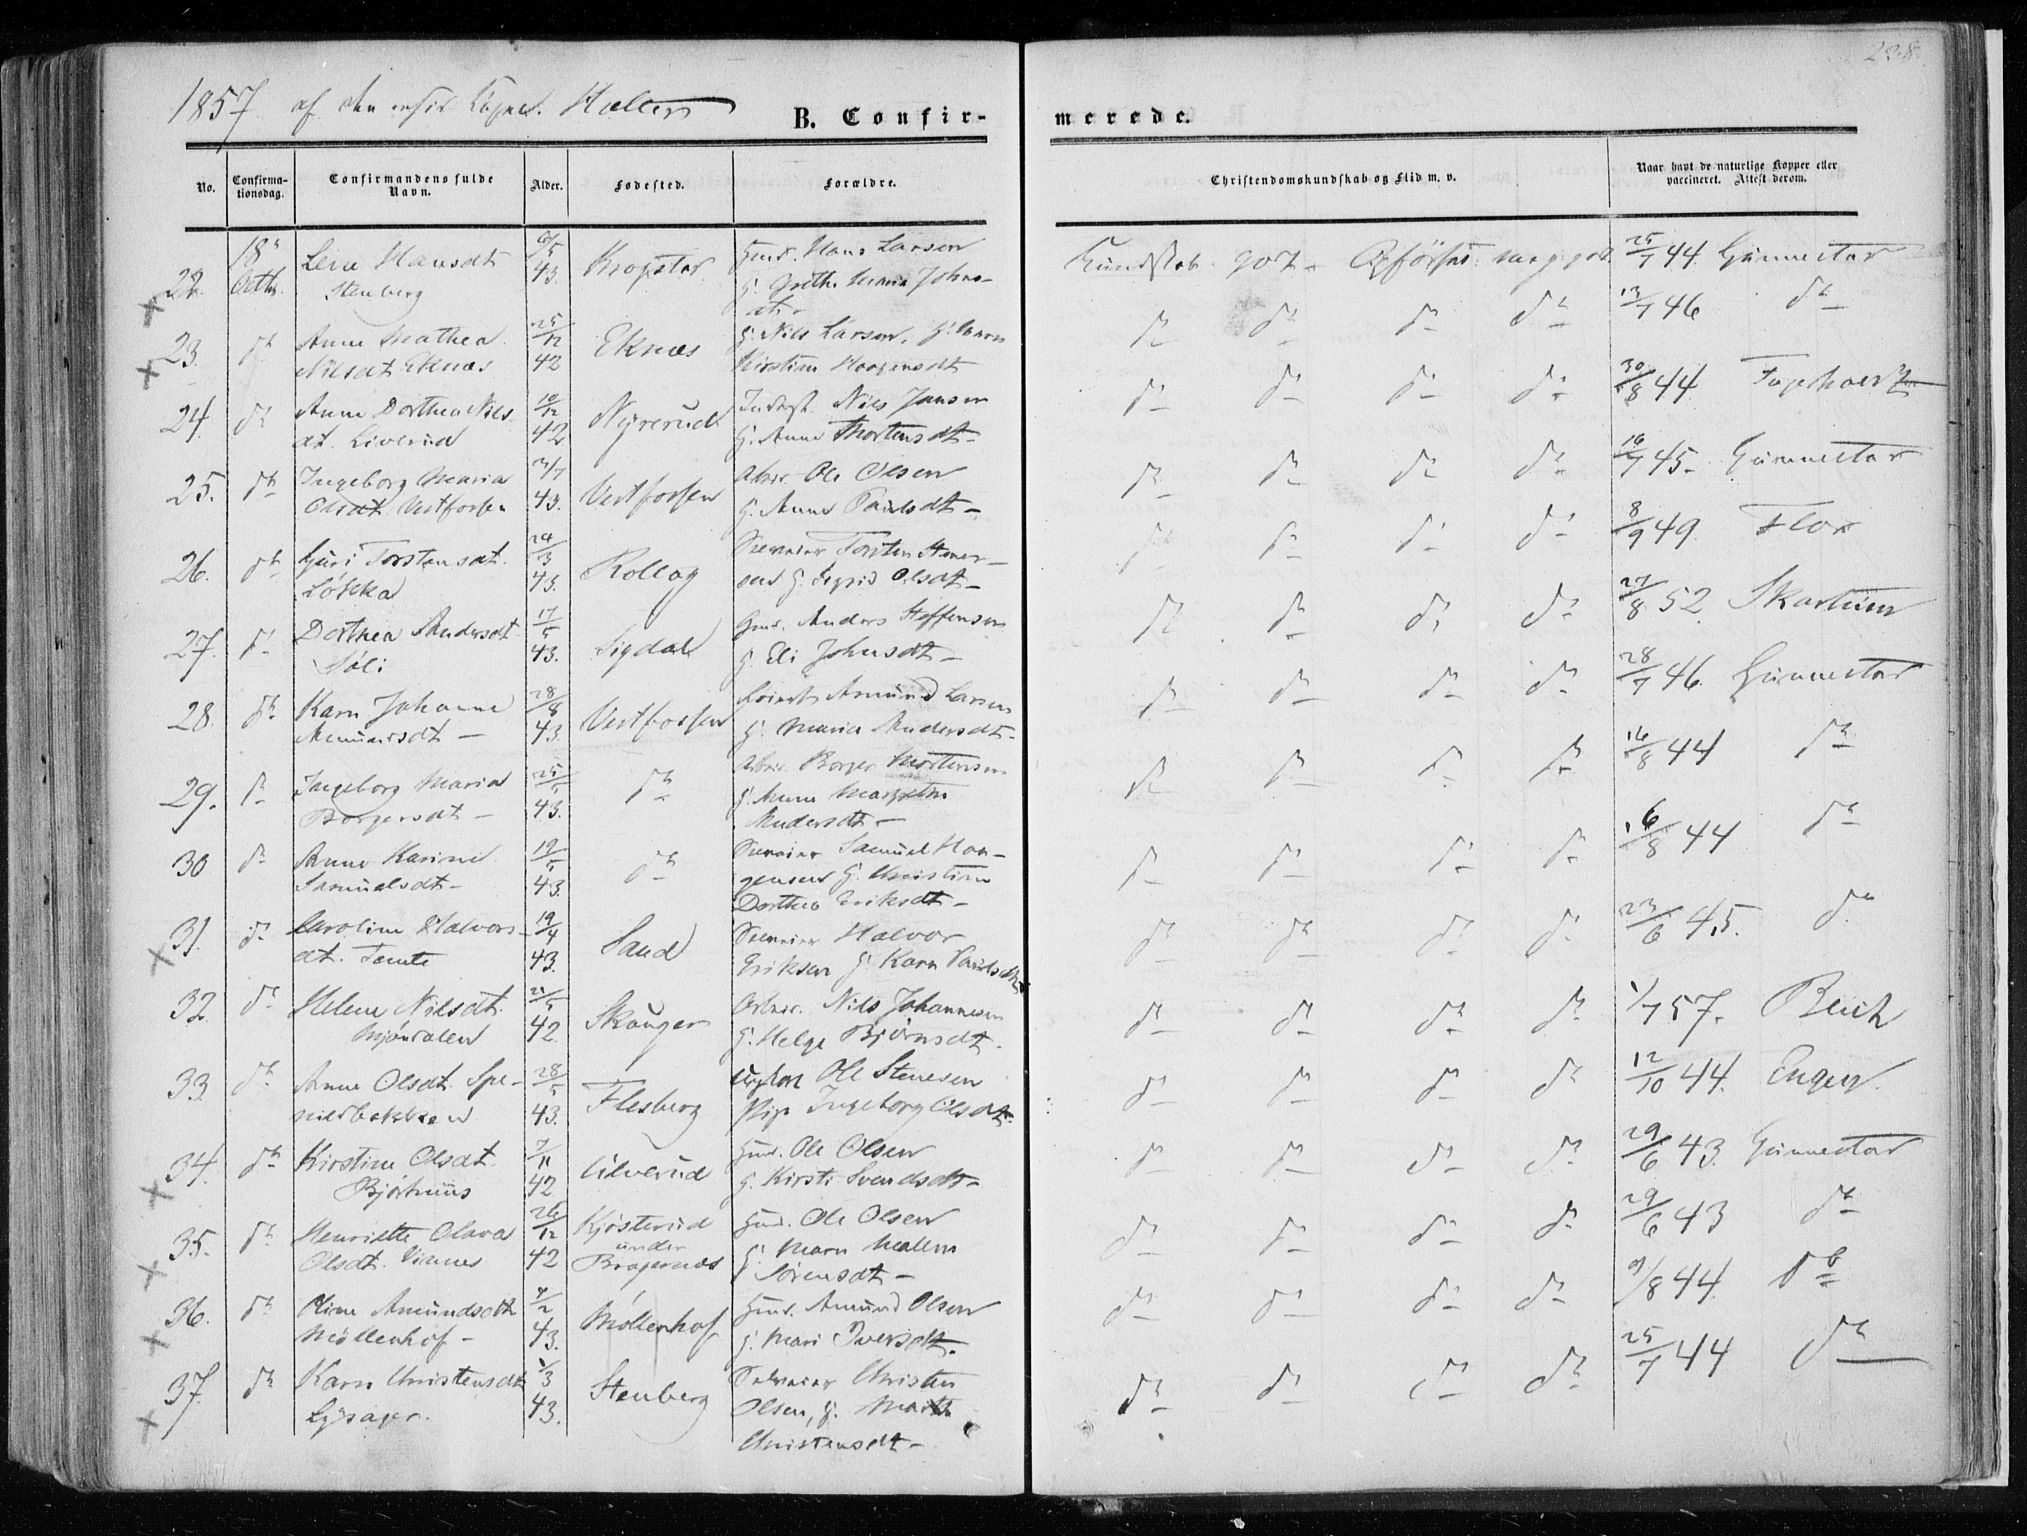 238.
1857 af
B. Confir-
merede.
No.
Confirma-
tionsdag.
Confirmandens fulde
Navn.
Alder.
Fødested.
Forældre.
Christendomskundskab og Flid m. v.
Naar havt de naturlige Kopper eller
vaccineret. Attest derom.
22. 18 Octbr. Lene Hansdt 6/5 Krogstad Gmd. Hans Larsen Kundskab got 25/7 44 Gunnestad
Stenberg 43. Maria Johns-
dt
23. do Anne Mathea 25/12 Eknæs G. Nils Larsen, do do do do 13/7 46 do
Nilsdt Eknæs 42 Kirstine Haagensdt
24. do Anne Dorthea Nils- 10/12 Nils Jansen do do do do 30/8 44
dt. Liverud 42 G. Anne Mortensdt
25. do Ingeborg Maria Vestfossen Ole Olsen do do do do 16/7 45. Gunnestad
Olsdt Vestfossen 43. G. Anne Paulsdt
26. do Guri Torstensdt. 24/3 Rollag Torsten do do do do 8/9 49. Flor
Løkka 43. G. Sigrid Olsdt
27. do Dorthea Andersdt 17/5 Sigdal Gmd. Anders Steffensen do do do do 27/8 52. Skartum
Søli 43. G. Eli Johnsdt
28. do Karn Johanne 28/8 Vestfossen Amund Larsen do do do do 28/7 46. Gunnestad
Amundsdt 43. G. Maria Andersdt
29. do Ingeborg Maria 25/5 do Borger Mortensen do do do do 16/8 44 do
Borgersdt 43. G. Anne Margrethe
Andersdt
30 do Anne Karine 19/5 do Samuel Haa- do do do do 16/8 44 do
Samuelsdt 43. gensen G. Christine
Dorthea Eriksdt
31. do Caroline Halvors- 19/4 Sand Halvor do do do do 23/6 45. do
dt. Tomte 43. Eriksen G. Karn Paulsdt
32. do Helene Nilsdt. 21/5 Skouger Nils Johannesen do do do do 1/7 57. Beich
Mjøndalen 42. G. Helge Bjørnsdt.
33. do Anne Olsdt. Spe- 28/5 Flesberg Ole Stenesen do do do do 12/10 44. Enger.
43. Pige Ingeborg Olsdt.
34. do Kirstine Olsdt. 7/11 Ulverud Gmd. Ole Olsen do do do do 29/6 43. Gunnestad
Bjørhuus 42 G. Kirsti Svendsdt
35. do Henriette Olava 26/12 Kjøsterud Gmd. Ole Olsen do do do do 29/6 43 do
Olsdt. 42 under G. Maren Malene
Bragernæs Sørensdt
36. do Oline Amundsdt 4/2 Møllenhof Gmd. Amund Olsen do do do do 9/8 44. do
Møllenhof 43. G. Mari Iversdt.
37. do Karn Christensdt 1/3 Stenberg Christen do do do do 25/7 44 do
Lysager. 43. Olsen, G. Marthe
Christensdt